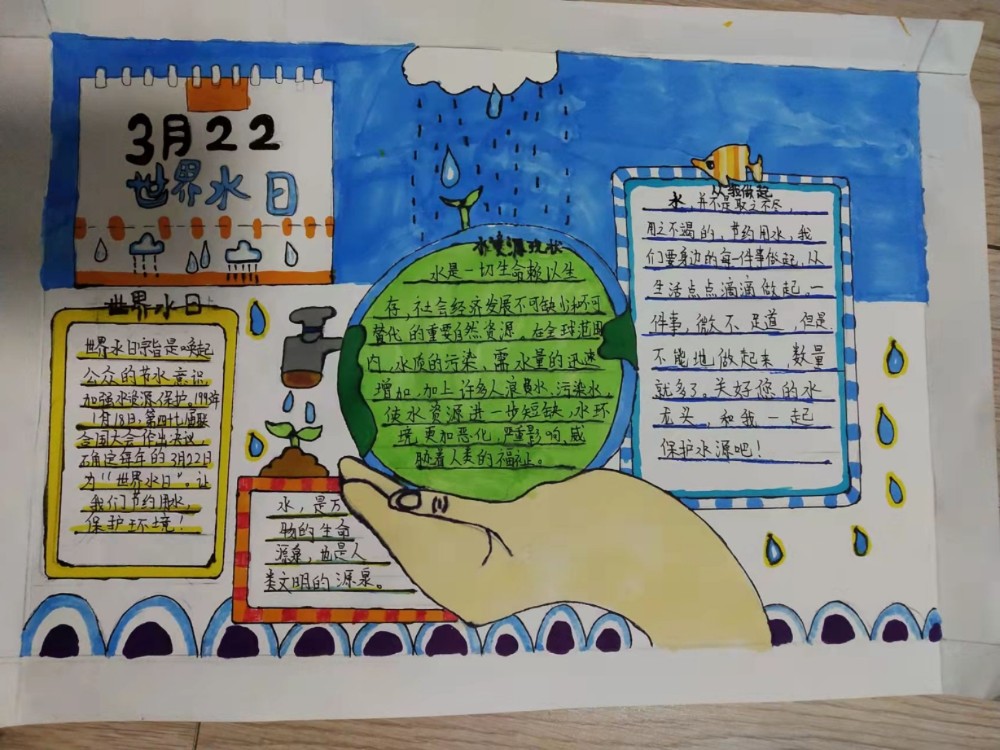 3月22
世界水日
世界水日
世界水日宗旨是唤起
公众的节水意识,
加强水资源保护。1993年
1月18日,第四十七届联
合国大会作出决议,
确定每年的3月22日
为“世界水日”。让
我们节约用水,
保护环境!
水,是万
物的生命
源泉,也是人
类文明的源泉。
水资源现状
水是一切生命赖以生
存,社会经济发展不可缺少和不可
替代的重要自然资源。在全球范围
内,水质的污染、需水量的迅速
增加,加上许多人浪费水、污染水,
使水资源进一步短缺,水环
境更加恶化,严重影响,威
胁着人类的福祉。
从我做起
水,并不是取之不尽,
用之不竭的,节约用水,我
们要身边的每一件事做起,从
生活点点滴滴做起。一
件事,微不足道,但是
不能地做起来,数量
就多了。关好您的水
龙头,和我一起
保护水源吧!